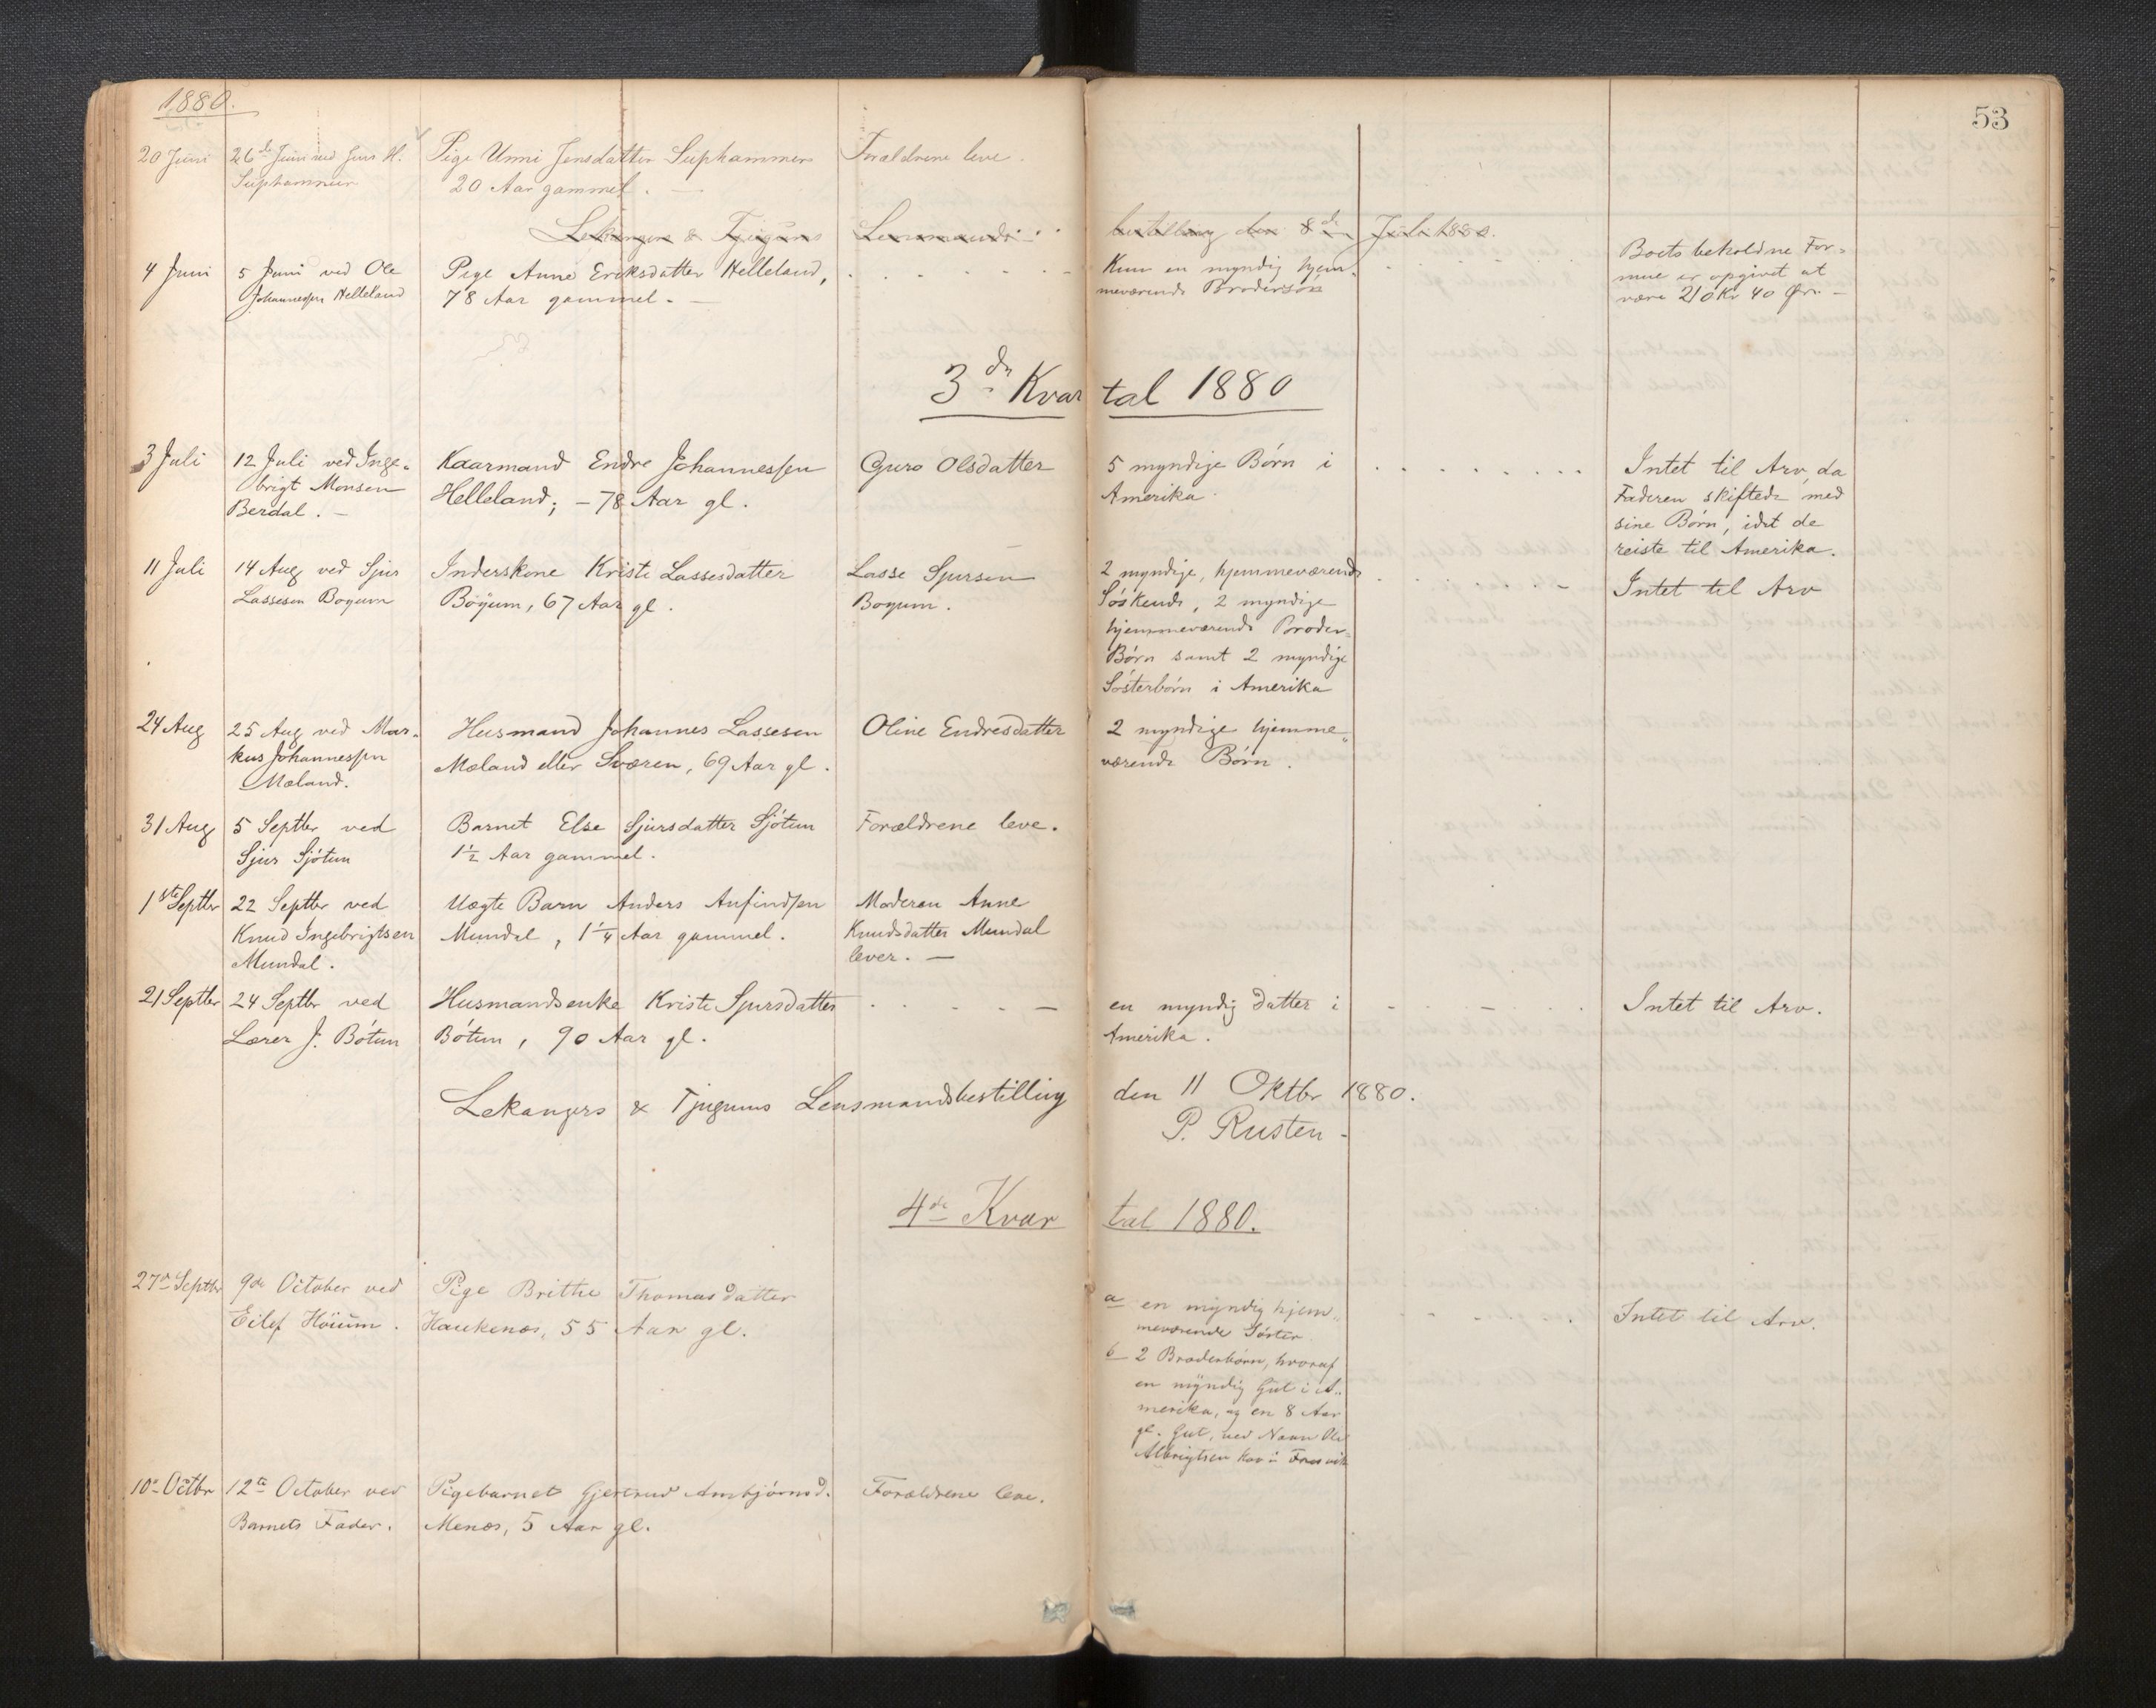 1880.
53
20 Juni
26de Juni ved Jens H.
Suphammer
Pige Unni Jensdatter Suphammer
20 Aar gammel. —
Forældrene leve.
Lekangers & Tjugums Lensmands
bestilling den 8de Juli 1880.
4 Juni
5 Juni ved Ole
Johannessen Helleland
Pige Anne Eriksdatter Helleland,
78 Aar gammel. —
Kun en myndig hjem-
meværende Brodersøn
Boets beholdne For-
mue er opgivet at
være 210 Kr 40 Øre —
3die Kvartal 1880
3 Juli
12 Juli ved Inge-
brigt Monsen
Berdal. —
Kaarmand Endre Johannessen
Helleland; — 78 Aar gl.
Guro Olsdatter
5 myndige Børn i
Amerika
Intet til Arv, da
Faderen skiftede med
sine Børn, idet de
reiste til Amerika.
11 Juli
14 Aug ved Sjur
Lassesen Boyum
Inderskone Kristi Lassesdatter
Bøyum, 67 Aar gl.
Lasse Sjursen
Boyum.
2 myndige, hjemmeværende
Søskende, 2 myndige
hjemmeværende Broder-
Børn samt 2 myndige
Søsterbørn i Amerika
Intet til Arv
24 Aug
25 Aug ved Mar-
kus Johannessen
Mæland.
Husmand Johannes Lassesen
Mæland eller Sværen, 69 Aar gl.
Oline Endresdatter
2 myndige hjemme-
værende Børn.
31 Aug
5 Septbr ved
Sjur Sjøtun
Barnet Else Sjursdatter Sjøtun
1½ Aar gammel.
Forældrene leve.
1ste Septbr
22 Septbr ved
Knud Ingebrigtsen
Mundal.
Uægte Barn Anders Anfindsen
Mundal, 1¼ Aar gammel.
Moderen Anne
Knudsdatter Mundal
lever. —
21 Septbr
24 Septbr ved
Lærer J. Bøtun
Husmandsenke Kristi Sjursdatter
Bøtun, 90 Aar gl.
en myndig datter i
Amerika.
Intet til Arv.
Lekangers & Tjugums Lensmandsbestilling den 11 Oktbr 1880.
P. Rusten -
4de Kvartal 1880.
27de Septbr
9de October ved
Eilef Höium.
Pige Brithe Thomasdatter
Haukenæs, 55 Aar gl.
a en myndig hjem-
meværende Søster.
b 2 Broderbørn, hvoraf
en myndig Gut i A-
merika, og en 8 Aar
gl. Gut, ved Navn Ole
Albrigtsen
Intet til Arv.
10de Octbr
12te October ved
Barnets Fader.
Pigebarnet Gjertrud Ambjørnsd.
Menæs, 5 Aar gl.
Forældrene leve.